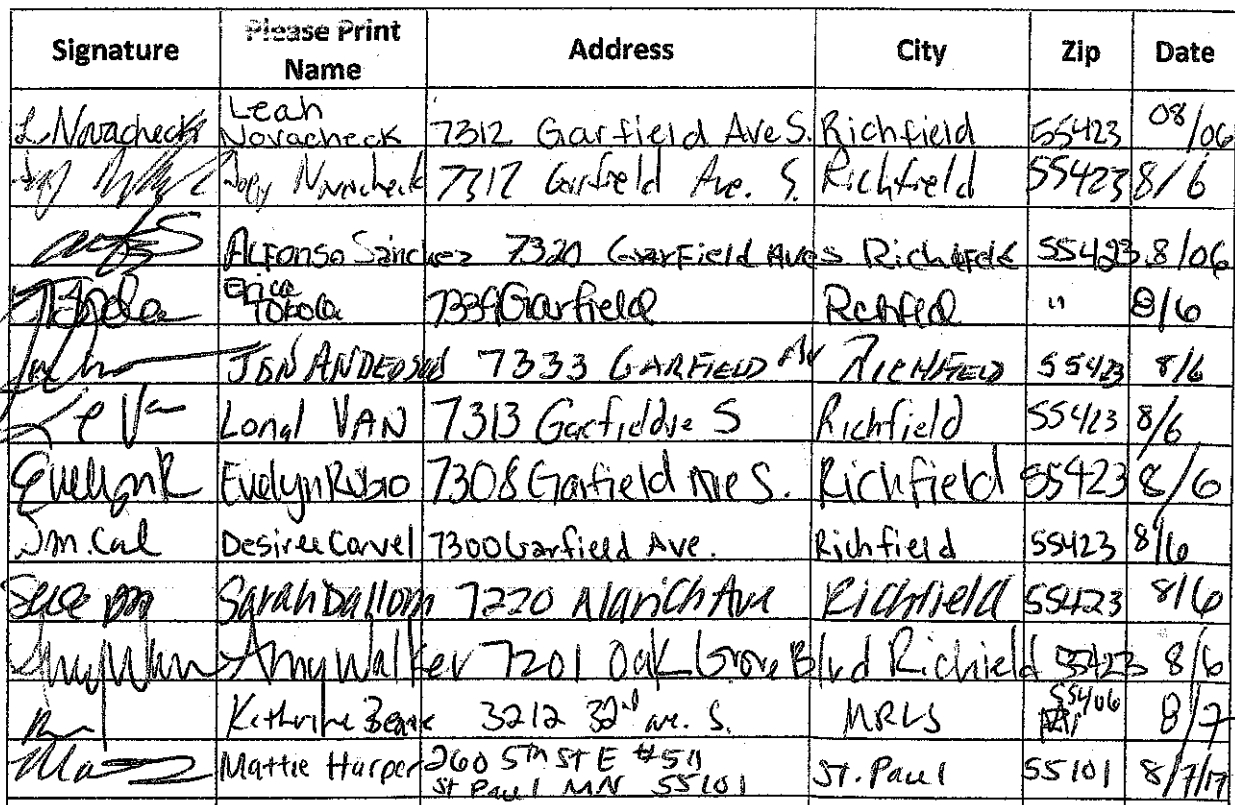 Signature Please Print Name Address City Zip Date
L. Novacheck Leah Novacheck 7312 Garfield Ave S. Richfield 55423 08/06
Novacheck 7312 Garfield Ave. S. Richfield 55423 8/6
Alfonso Sanchez 7320 Garfield Ave S Richfield 55423 8/06
Erica Tokola Garfield Richfield " 8/6
JON ANDERSON 7333 GARFIELD AV RICHFIELD 55423 8/6
VAN 7313 S Richfield 55423 8/6
Evelyn R Evelyn Rubio 7308 Garfield Ave S. Richfield 55423 8/6
Desiree Carvel 7300 Garfield Ave. Richfield 55423 8/6
Sarah 7220 Ave Richfield 55423 8/6
Amy Walker 7201 Oak Grove Blvd Richield 55423 8/6
Katherine 3212 32nd ave. S. 55406 8/7
Mattie Harper 260 5th ST E #511 St Paul MN 55101 ST. Paul 55101 8/7/17